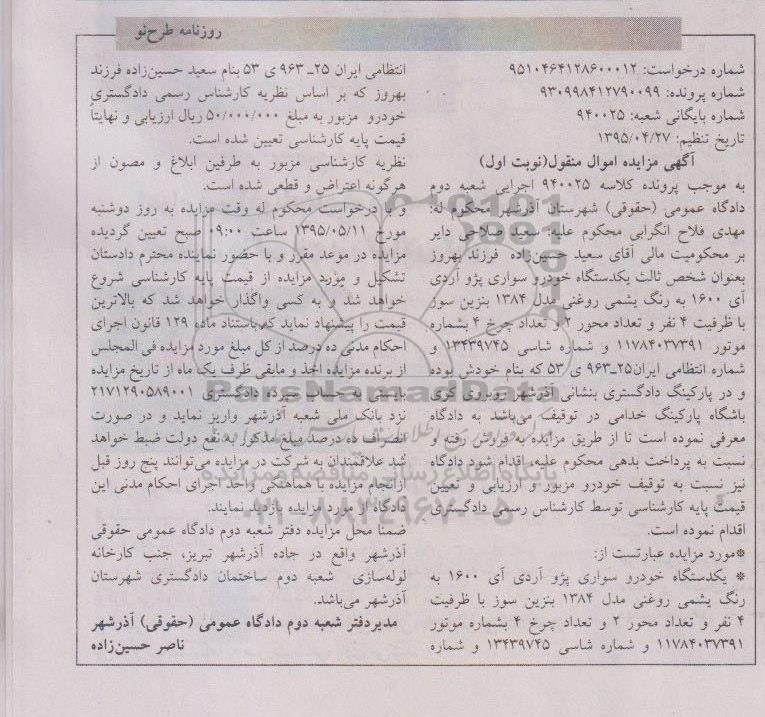 روزنامه طرح‌نو
شماره درخواست: ۹۵۱۰۴۶۴۱۲۸۶۰۰۰۱۲
شماره پرونده: ۹۳۰۹۹۸۴۱۲۷۹۰۰۹۹
شماره بایگانی شعبه: ۹۴۰۰۲۵
تاریخ تنظیم: ۱۳۹۵/۰۴/۲۷
آگهی مزایده اموال منقول(نوبت اول)
به موجب پرونده کلاسه ۹۴۰۰۲۵ اجرایی شعبه دوم
دادگاه عمومی (حقوقی) شهرستان آذرشهر محکوم له:
مهدی فلاح انگرابی محکوم علیه: سعید صلاحی دایر
بر محکومیت مالی آقای سعید حسین‌زاده فرزند بهروز
بعنوان شخص ثالث یکدستگاه خودرو سواری پژو آردی
آی ۱۶۰۰ به رنگ یشمی روغنی مدل ۱۳۸۴ بنزین سوز
با ظرفیت ۴ نفر و تعداد محور ۲ و تعداد چرخ ۴ بشماره
موتور ۱۱۷۸۴۰۳۷۳۹۱ و شماره شاسی ۱۳۴۳۹۷۴۵ و
شماره انتظامی ایران۲۵ـ۹۶۳ ی ۵۳ که بنام خودش بوده
و در پارکینگ دادگستری بنشانی آذرشهر روبروی کری
باشگاه پارکینگ خدامی در توقیف می‌باشد به دادگاه
معرفی نموده است تا از طریق مزایده به فروش رفته و
نسبت به پرداخت بدهی محکوم علیه، اقدام شود دادگاه
نیز نسبت به توقیف خودرو مزبور و ارزیابی و تعیین
قیمت پایه کارشناسی توسط کارشناس رسمی دادگستری
اقدام نموده است.
*مورد مزایده عبارتست از:
* یکدستگاه خودرو سواری پژو آردی آی ۱۶۰۰ به
رنگ یشمی روغنی مدل ۱۳۸۴ بنزین سوز با ظرفیت
۴ نفر و تعداد محور ۲ و تعداد چرخ ۴ بشماره موتور
۱۱۷۸۴۰۳۷۳۹۱ و شماره شاسی ۱۳۴۳۹۷۴۵ و شماره
انتظامی ایران ۲۵ـ ۹۶۳ ی ۵۳ بنام سعید حسین‌زاده فرزند
بهروز که بر اساس نظریه کارشناس رسمی دادگستری
خودرو مزبور به مبلغ ۵۰/۰۰۰/۰۰۰ ریال ارزیابی و نهایتاً
قیمت پایه کارشناسی تعیین شده است.
نظریه کارشناسی مزبور به طرفین ابلاغ و مصون از
هرگونه اعتراض و قطعی شده است.
و با درخواست محکوم له وقت مزایده به روز دوشنبه
مورخ ۱۳۹۵/۰۵/۱۱ ساعت ۰۹:۰۰ صبح تعیین گردیده
مزایده در موعد مقرر و با حضور نماینده محترم دادستان
تشکیل و مورد مزایده از قیمت پایه کارشناسی شروع
خواهد شد و به کسی واگذار خواهد شد که بالاترین
قیمت را پیشنهاد نماید که باستناد ماده ۱۲۹ قانون اجرای
احکام مدنی ده درصد از کل مبلغ مورد مزایده فی المجلس
از برنده مزایده اخذ و مابقی ظرف یک ماه از تاریخ مزایده
بایستی به حساب سپرده دادگستری ۲۱۷۱۲۹۰۵۸۹۰۰۱
نزد بانک ملی شعبه آذرشهر واریز نماید و در صورت
انصراف ده درصد مبلغ مذکور به نفع دولت ضبط خواهد
شد علاقمندان به شرکت در مزایده می‌توانند پنج روز قبل
ازانجام مزایده با هماهنگی واحد اجرای احکام مدنی این
دادگاه از مورد مزایده بازدید نمایند.
ضمنا محل مزایده دفتر شعبه دوم دادگاه عمومی حقوقی
آذرشهر واقع در جاده آذرشهر تبریز، جنب کارخانه
لوله‌سازی شعبه دوم ساختمان دادگستری شهرستان
آذرشهر می‌باشد.
مدیردفتر شعبه دوم دادگاه عمومی (حقوقی) آذرشهر
ناصر حسین‌زاده
ParsNamadData